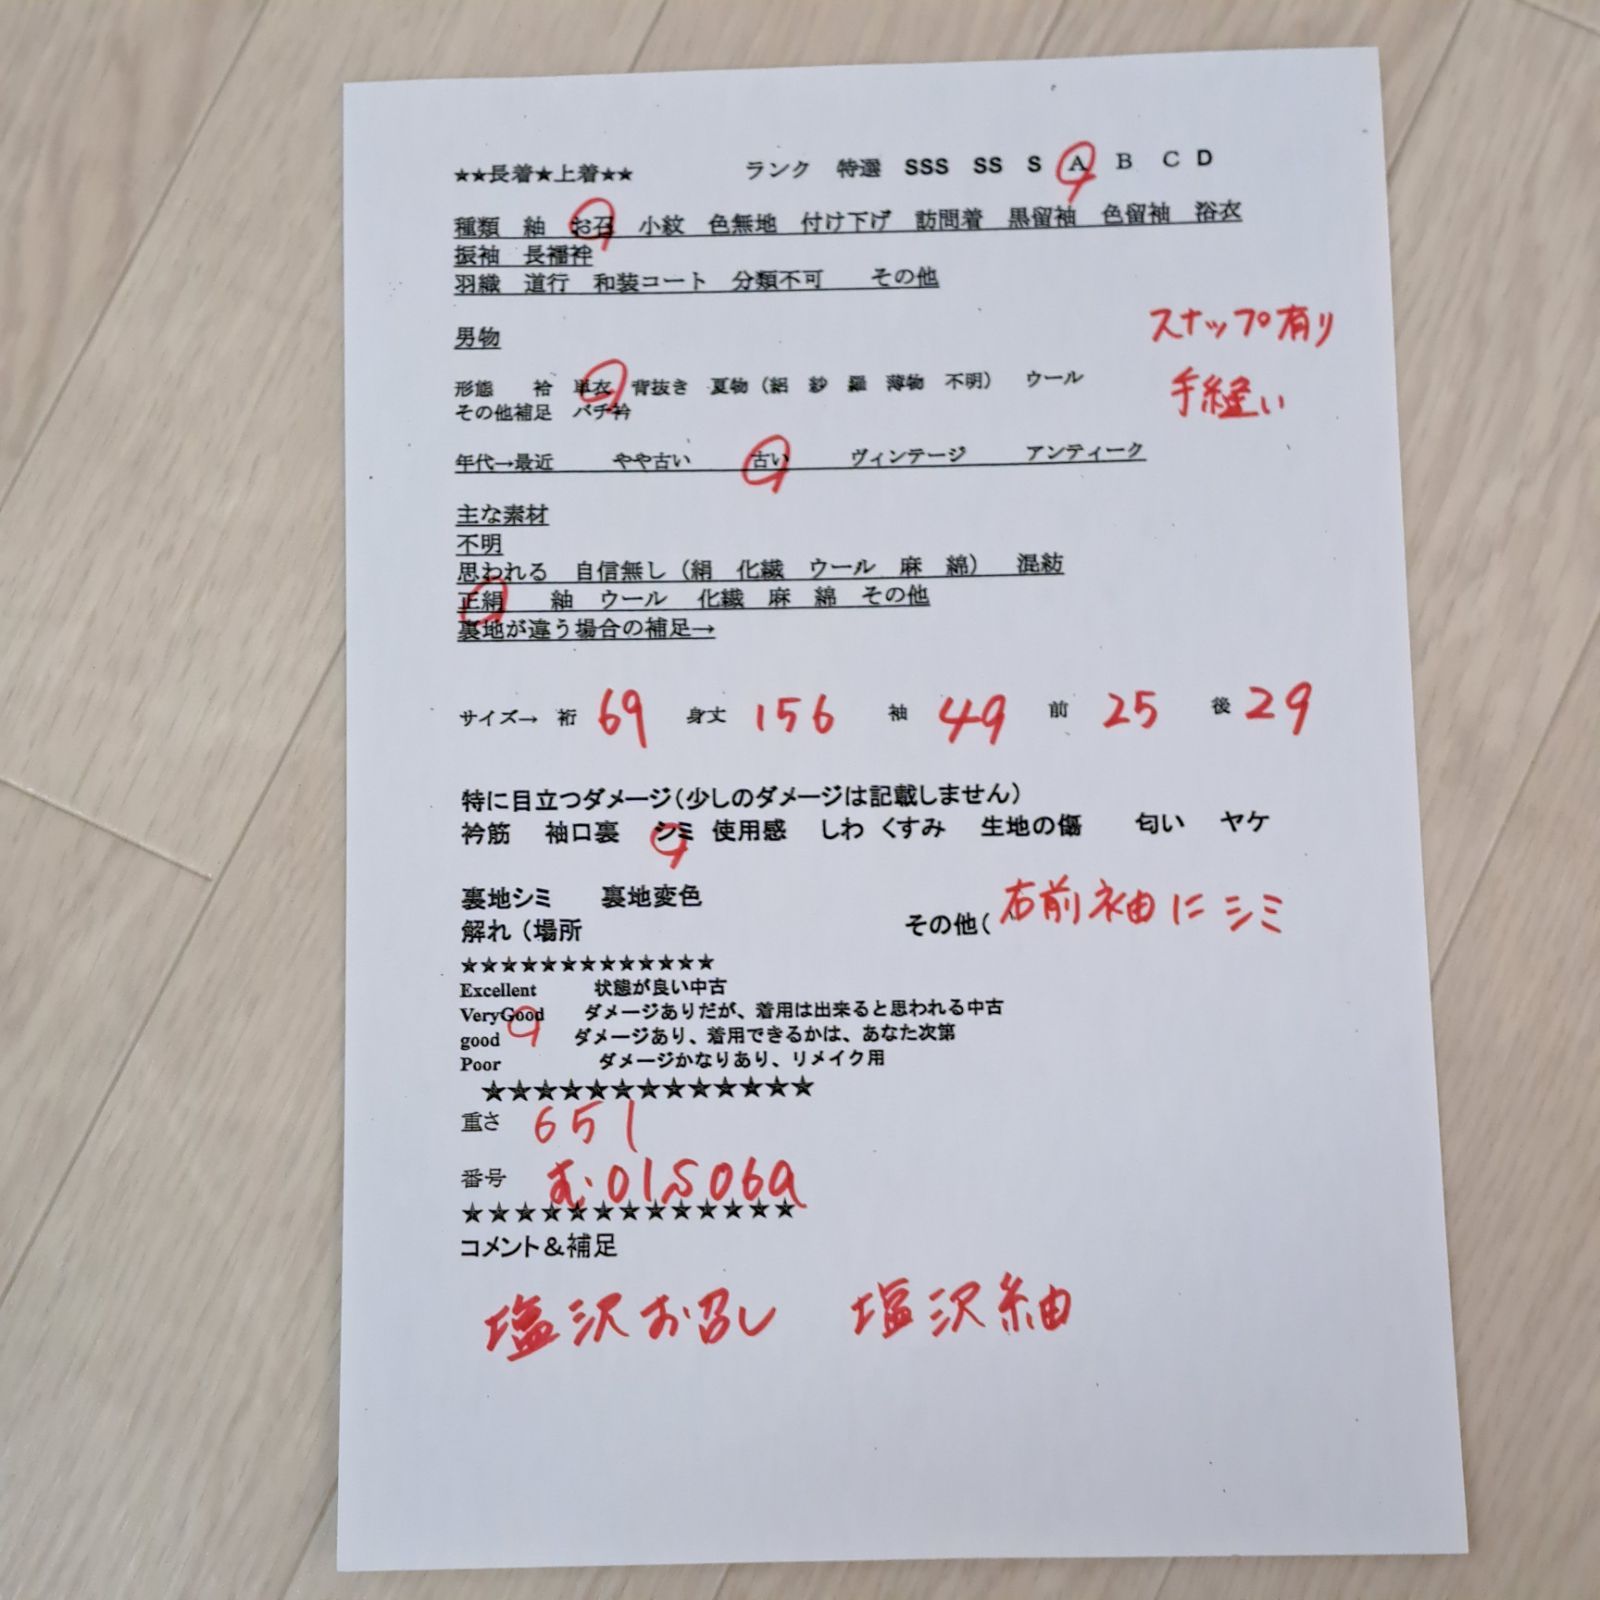 ★★長着★上着★★ ランク 特選 SSS SS S A B C D
種類 紬 お召 小紋 色無地 付け下げ 訪問着 黒留袖 色留袖 浴衣
振袖 長襦袢
羽織 道行 和装コート 分類不可 その他
男物
スナップ有り
形態 袷 単衣 背抜き 夏物（絽 紗 羅 薄物 不明） ウール
手縫い
その他補足 バチ衿
年代→最近 やや古い 古い ヴィンテージ アンティーク
主な素材
不明
思われる 自信無し（絹 化繊 ウール 麻 綿） 混紡
正絹 紬 ウール 化繊 麻 綿 その他
裏地が違う場合の補足→
サイズ→ 裄 69 身丈 156 袖 49 前 25 後 29
特に目立つダメージ（少しのダメージは記載しません）
衿筋 袖口裏 シミ 使用感 しわ くすみ 生地の傷 匂い ヤケ
裏地シミ 裏地変色
解れ（場所 その他（ 右前袖にシミ
★★★★★★★★★★★★★
Excellent 状態が良い中古
VeryGood ダメージありだが、着用は出来ると思われる中古
good ダメージあり、着用できるかは、あなた次第
Poor ダメージかなりあり、リメイク用
★★★★★★★★★★★★★
重さ 651
番号
★★★★★★★★★★★★★
コメント＆補足
塩沢お召し 塩沢紬